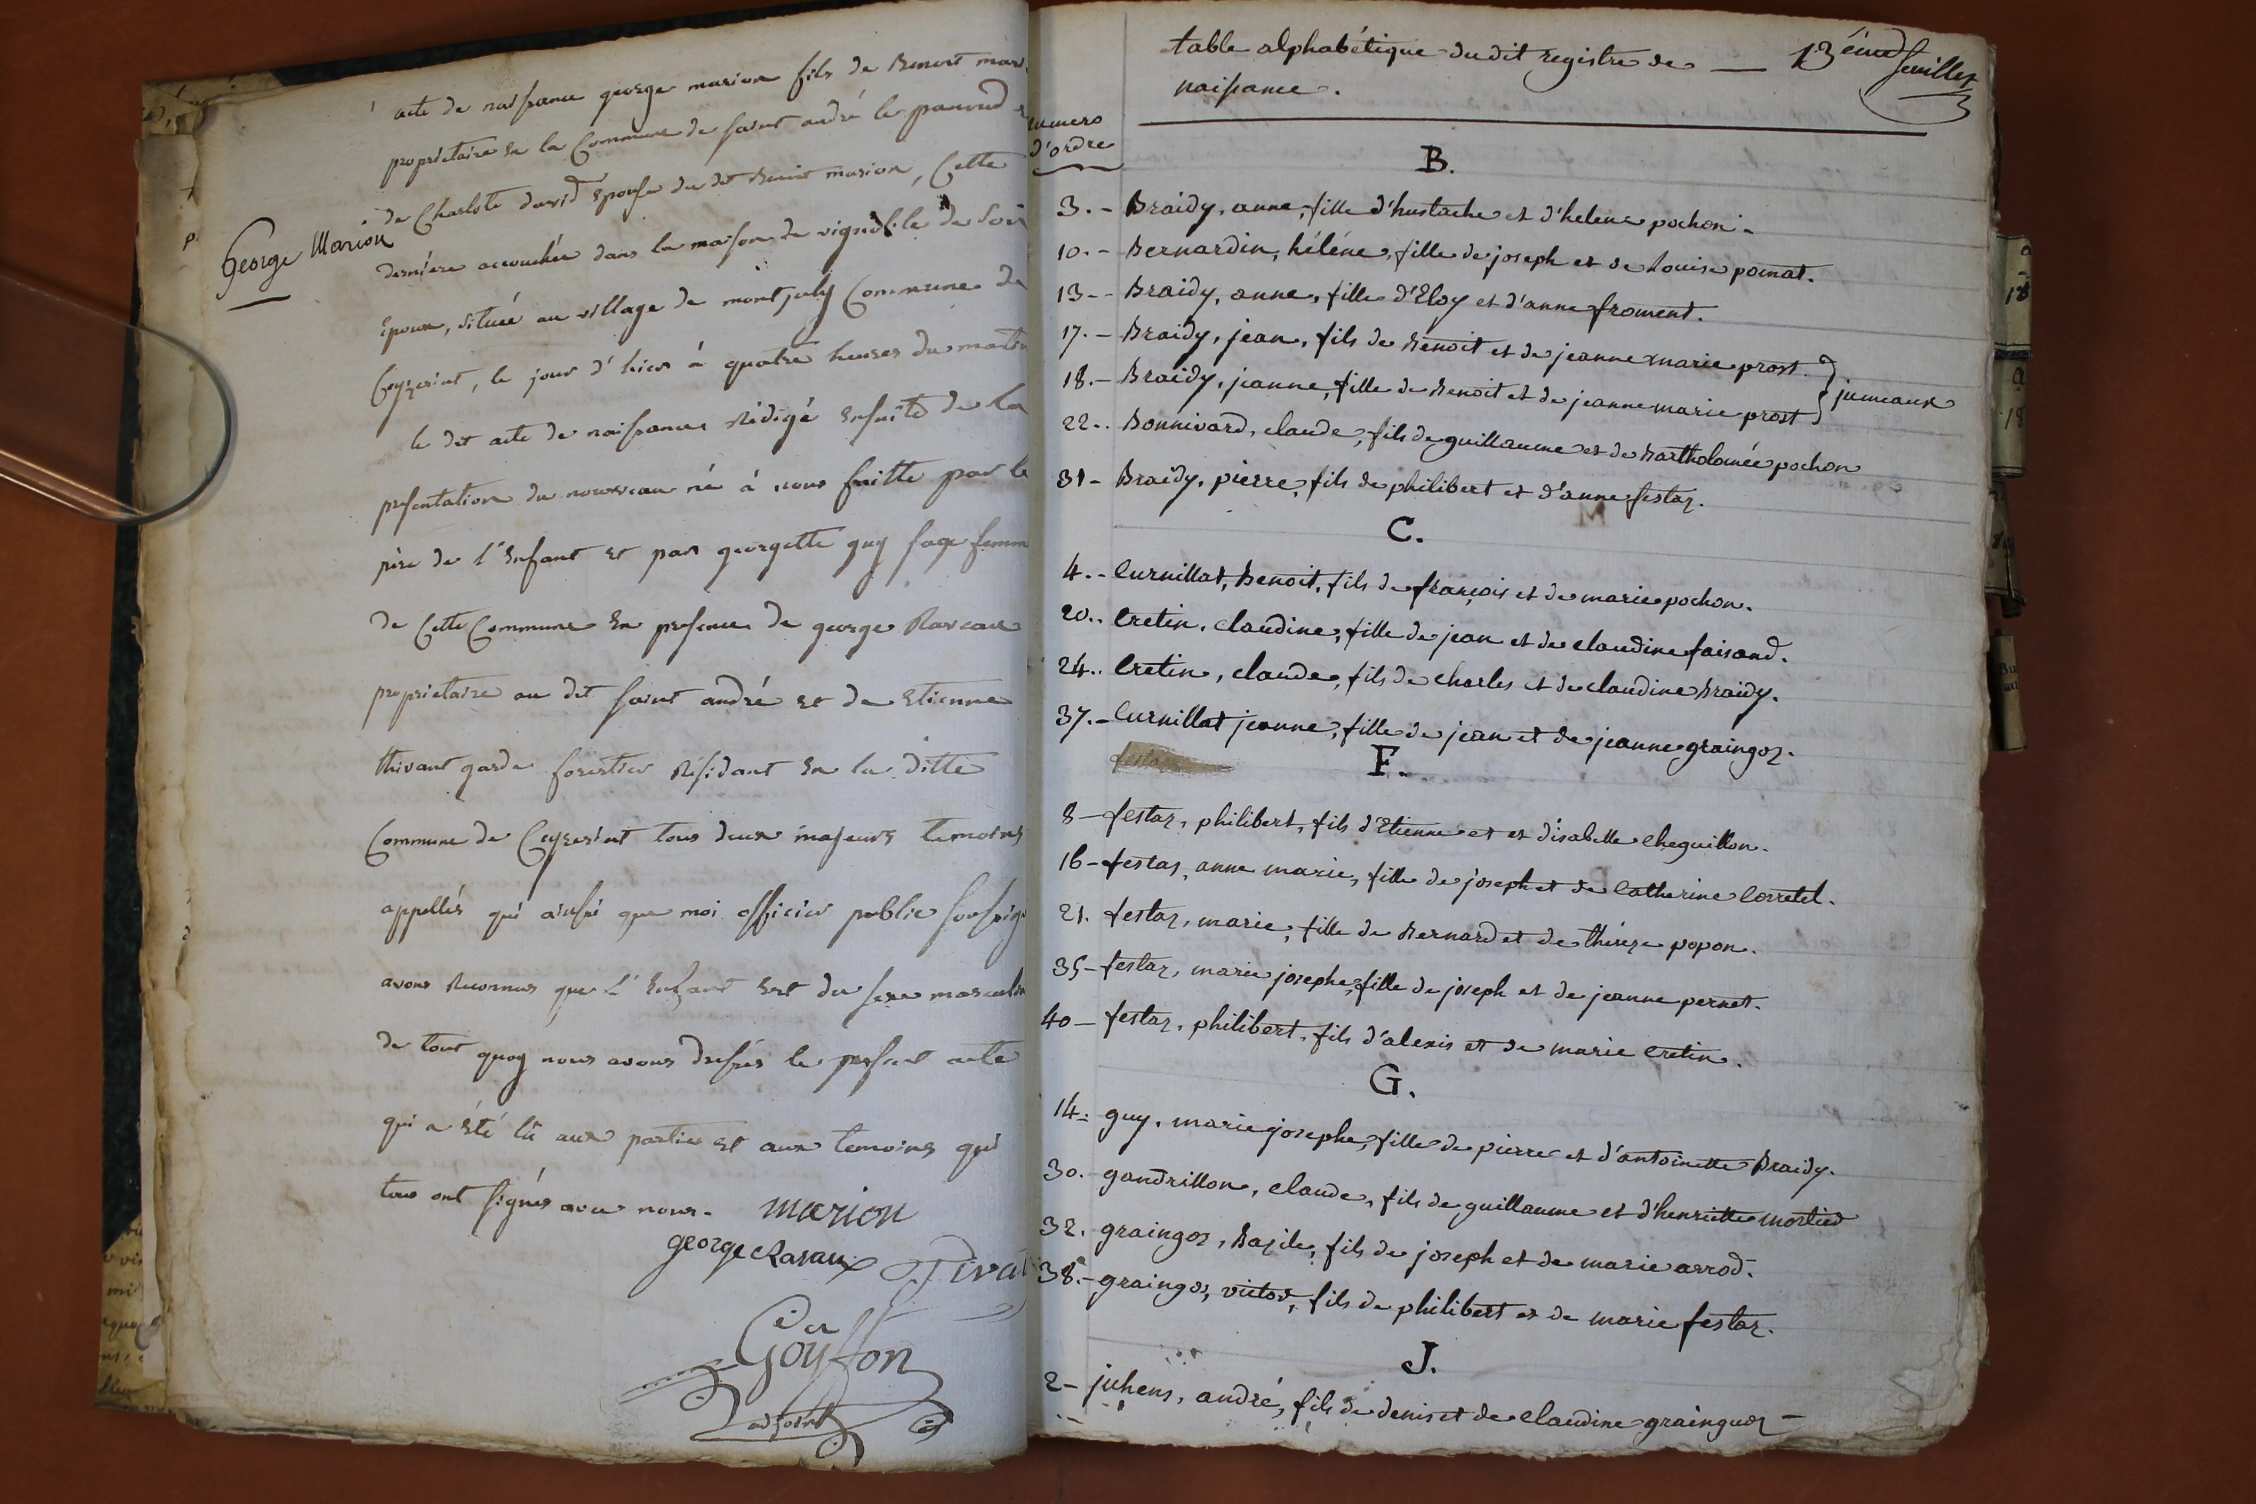 acte de naissance george marion fils de Benoit mar
proprietaire en la Commune de saint andré le panoud et
de Charlote david Epouse du dit Benoit marion, Cette
George Marion
derniere accouchée dans la maison de vignoble de son
Epoux, située au village de montjuly Commune de
Ceyzeriat, le jour d'hier à quatre heures du matin
le dit acte de naissance Rédigé ensuite de la
presentation du nouveau né à nous faitte par le
père de l'enfant et par georgette guy sage femme
de Cette Commune En presence de george Ravaux
proprietaire au dit saint andré et de Etienne
thivant garde forestier Residant en la ditte
Commune de Ceyzeriat tous deux majeurs temoins
appellés qui ainsi que moi officier public soussigné
avons Reconnus que L'Enfant est du sexe masculin
de tout quoy nous avons dressés le present acte
qui a été lû aux parties et aux temoins qui
tous ont signés avec nous. marion
george Ravaux Tiva
Goiffon
adjoint
table alphabétique du dit registre de — 13ème feuillet
naissance.
numero
d'ordre
B.
3. - Braidy, anne, fille d'hustache et d'helene pochon.
10. - Bernardin, héléne, fille de joseph et de Louise pomat.
13 - - Braidy, anne, fille d'Eloy et d'anne froment.
17. - Braidy, jean, fils de Benoit et de jeanne marie prost.
18. - Braidy, jeanne, fille de Benoit et de jeanne marie prost } jumeaux
22. . Bonnivard, claude, fils de guillaume et de Bartholomée pochon
31 - Braidy, pierre, fils de philibert et d'anne festaz.
C.
4. - Curnillat, Benoit, fils de françois et de marie pochon.
20. . Cretin, claudine, fille de jean et de claudine faisand.
24. . Cretin, claude, fils de charles et de claudine Braidy.
37. - Curnillat jeanne, fille de jean et de jeanne graingoz.
F.
8 - festaz, philibert, fils d'Etienne et et d'isabelle cheguillon.
16 - festas, anne marie, fille de joseph et de Catherine Corretel.
21. festaz, marie, fille de Bernard et de thérèze popon.
35 - festaz, marie josephe, fille de joseph et de jeanne pernet.
40 - festaz, philibert, fils d'alexis et de marie Cretin.
G.
14. guy, marie josephe, fille de pierre et d'antoinette Braidy.
30. - gandrillon, claude, fils de guillaume et d'henriette mortied
32. graingoz, Bazile, fils de joseph et de marie arrod.
38. - graingos, victor, fils de philibert et de marie festaz.
J.
2 - juhens, andré, fils de denis et de claudine grainguoz -